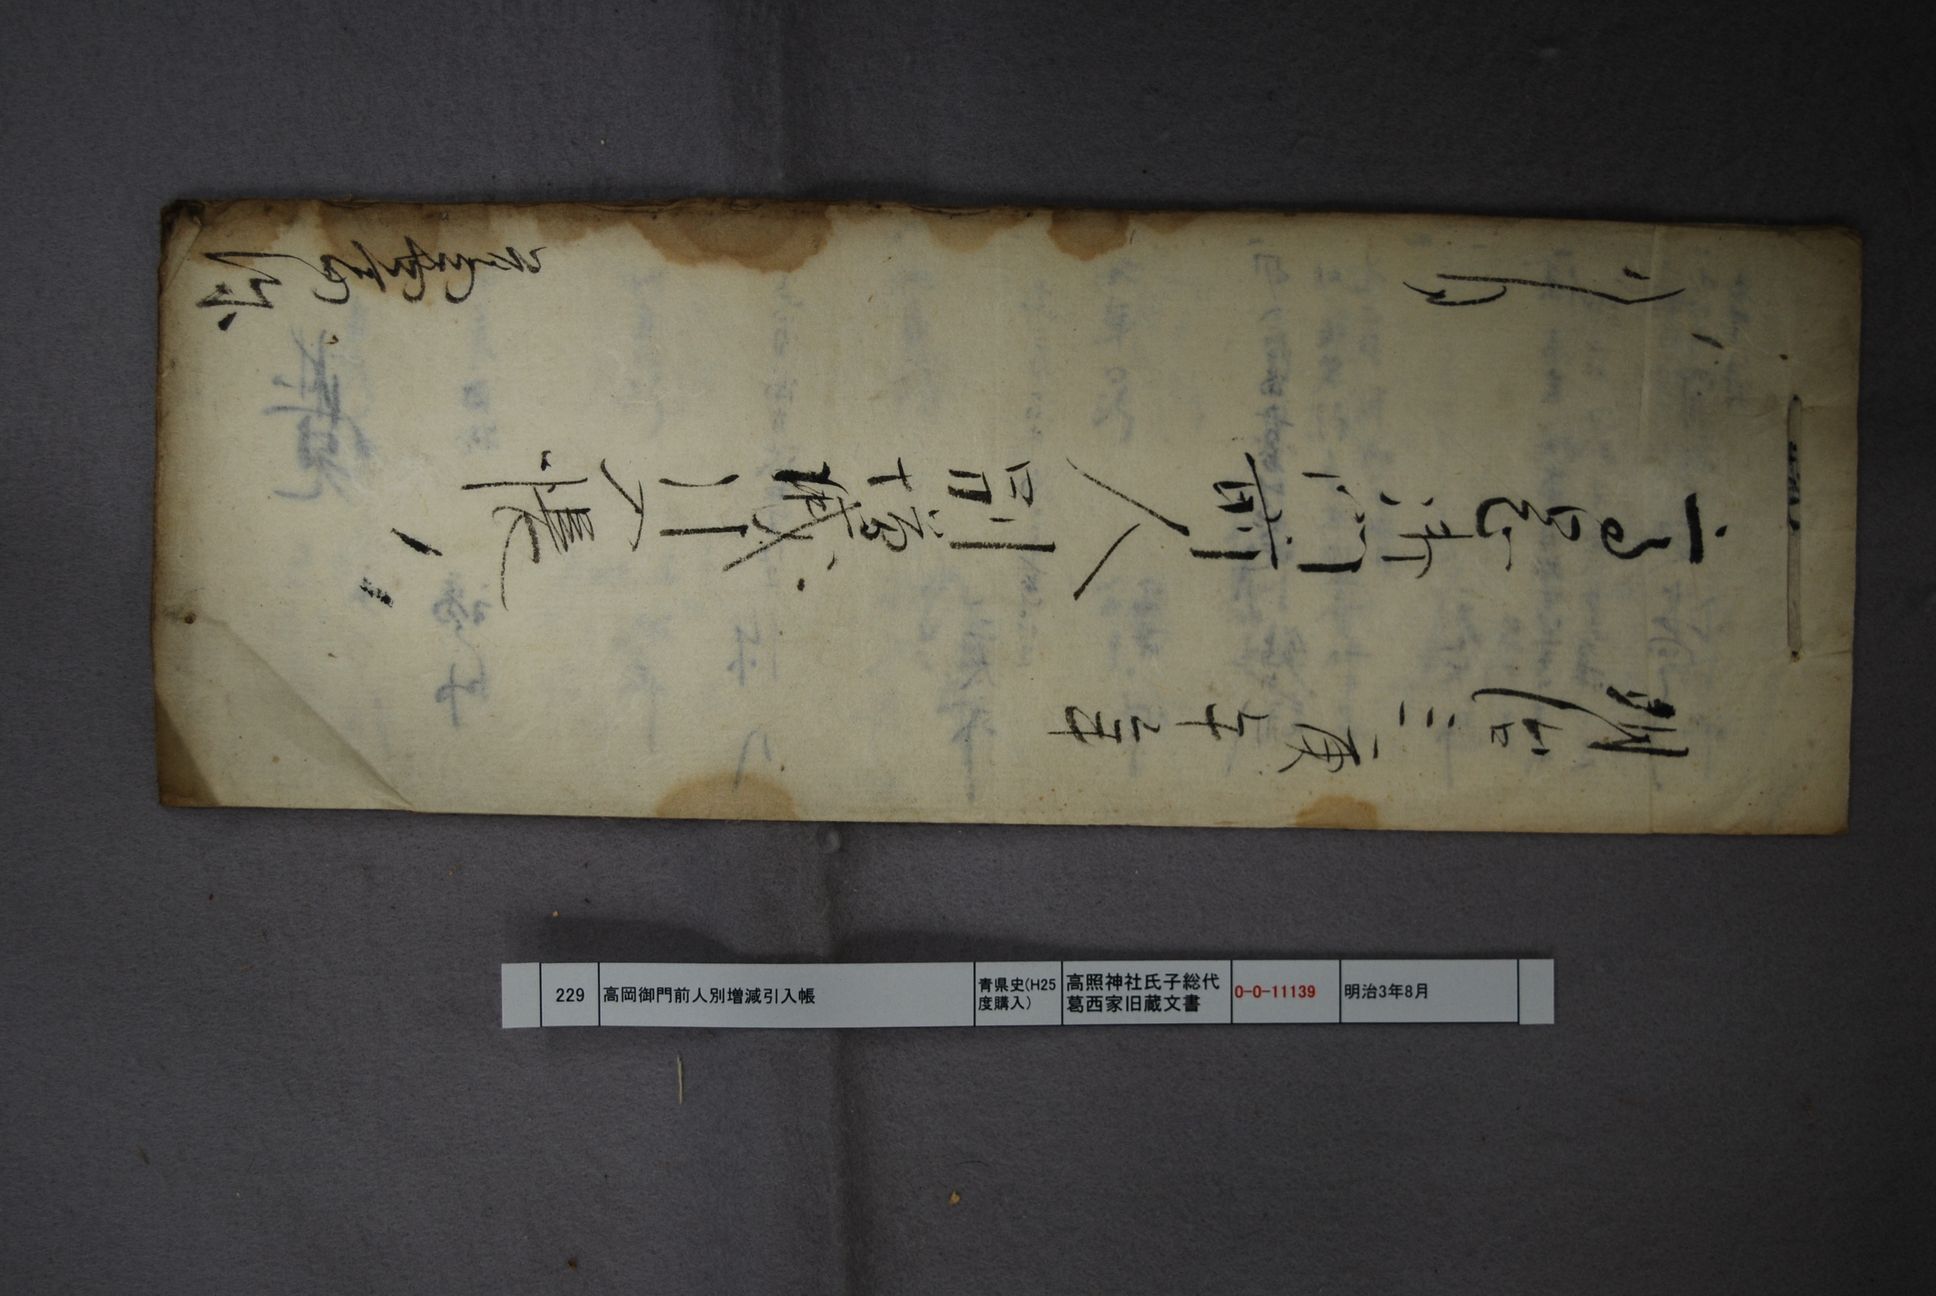 明治三庚午年
高岡御門前人別増減引入帳
八月
229
高岡御門前人別増減引入帳
青県史(H25
度購入)
高照神社氏子総代
葛西家旧蔵文書
0-0-11139
明治3年8月